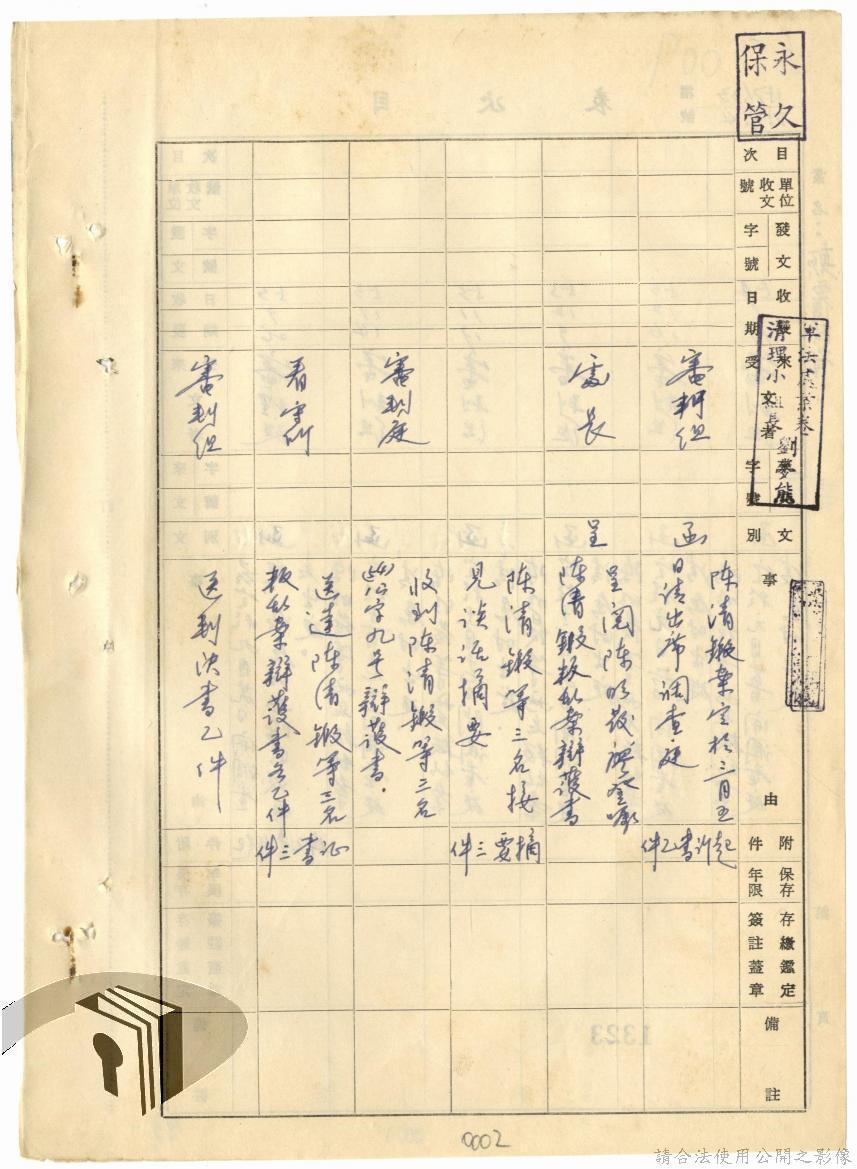 永久
保管
目次
單位收文號
發文字號
收發日期
來受文者
文別
事由
附件
保存年限
存繳鑑定
簽註蓋章
備註
清理小組長 劉
審判組
函
陳清鍛案定於三月五
日請出席調查庭
起訴書乙件
處長
呈
呈閱陳
陳清鍛叛亂案辯護書
陳清鍛等三名接
見談話摘要
摘要三件
審判庭
收到陳清鍛等三名
字九号辯護書.
看守所
送達陳清鍛等三名
叛亂案辯護書各乙件
証書三件
審判組
送判決書乙件
1323
0002
請合法使用公開之影像